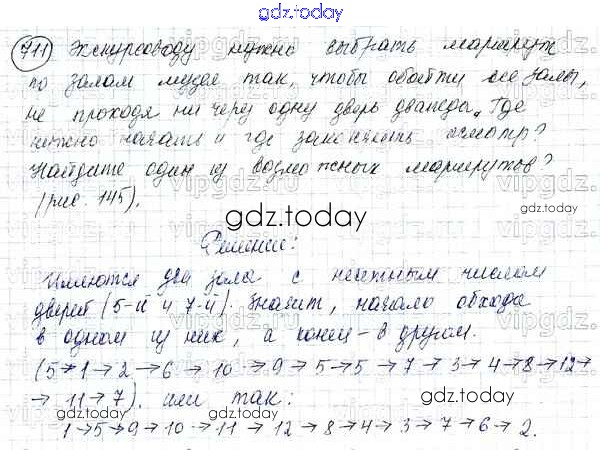 gdz.today
711 Экскурсоводу нужно выбрать маршрут
по залам музея так, чтобы обойти все залы,
не проходя ни через одну дверь дважды. Где
нужно начать и где закончить осмотр?
Найдите один из возможных маршрутов?
(рис. 145).
gdz.today
gdz.today
Решение:
Имеются два зала с нечетным числом
дверей (5-й и 7-й). Значит, начало обхода
в одном из них, а конец - в другом.
(5→1→2→6→10→9→5→5→7→3→4→8→12→
→11→7). или так:
gdz.today
gdz.today
1→5→9→10→11→12→8→4→3→7→6→2.